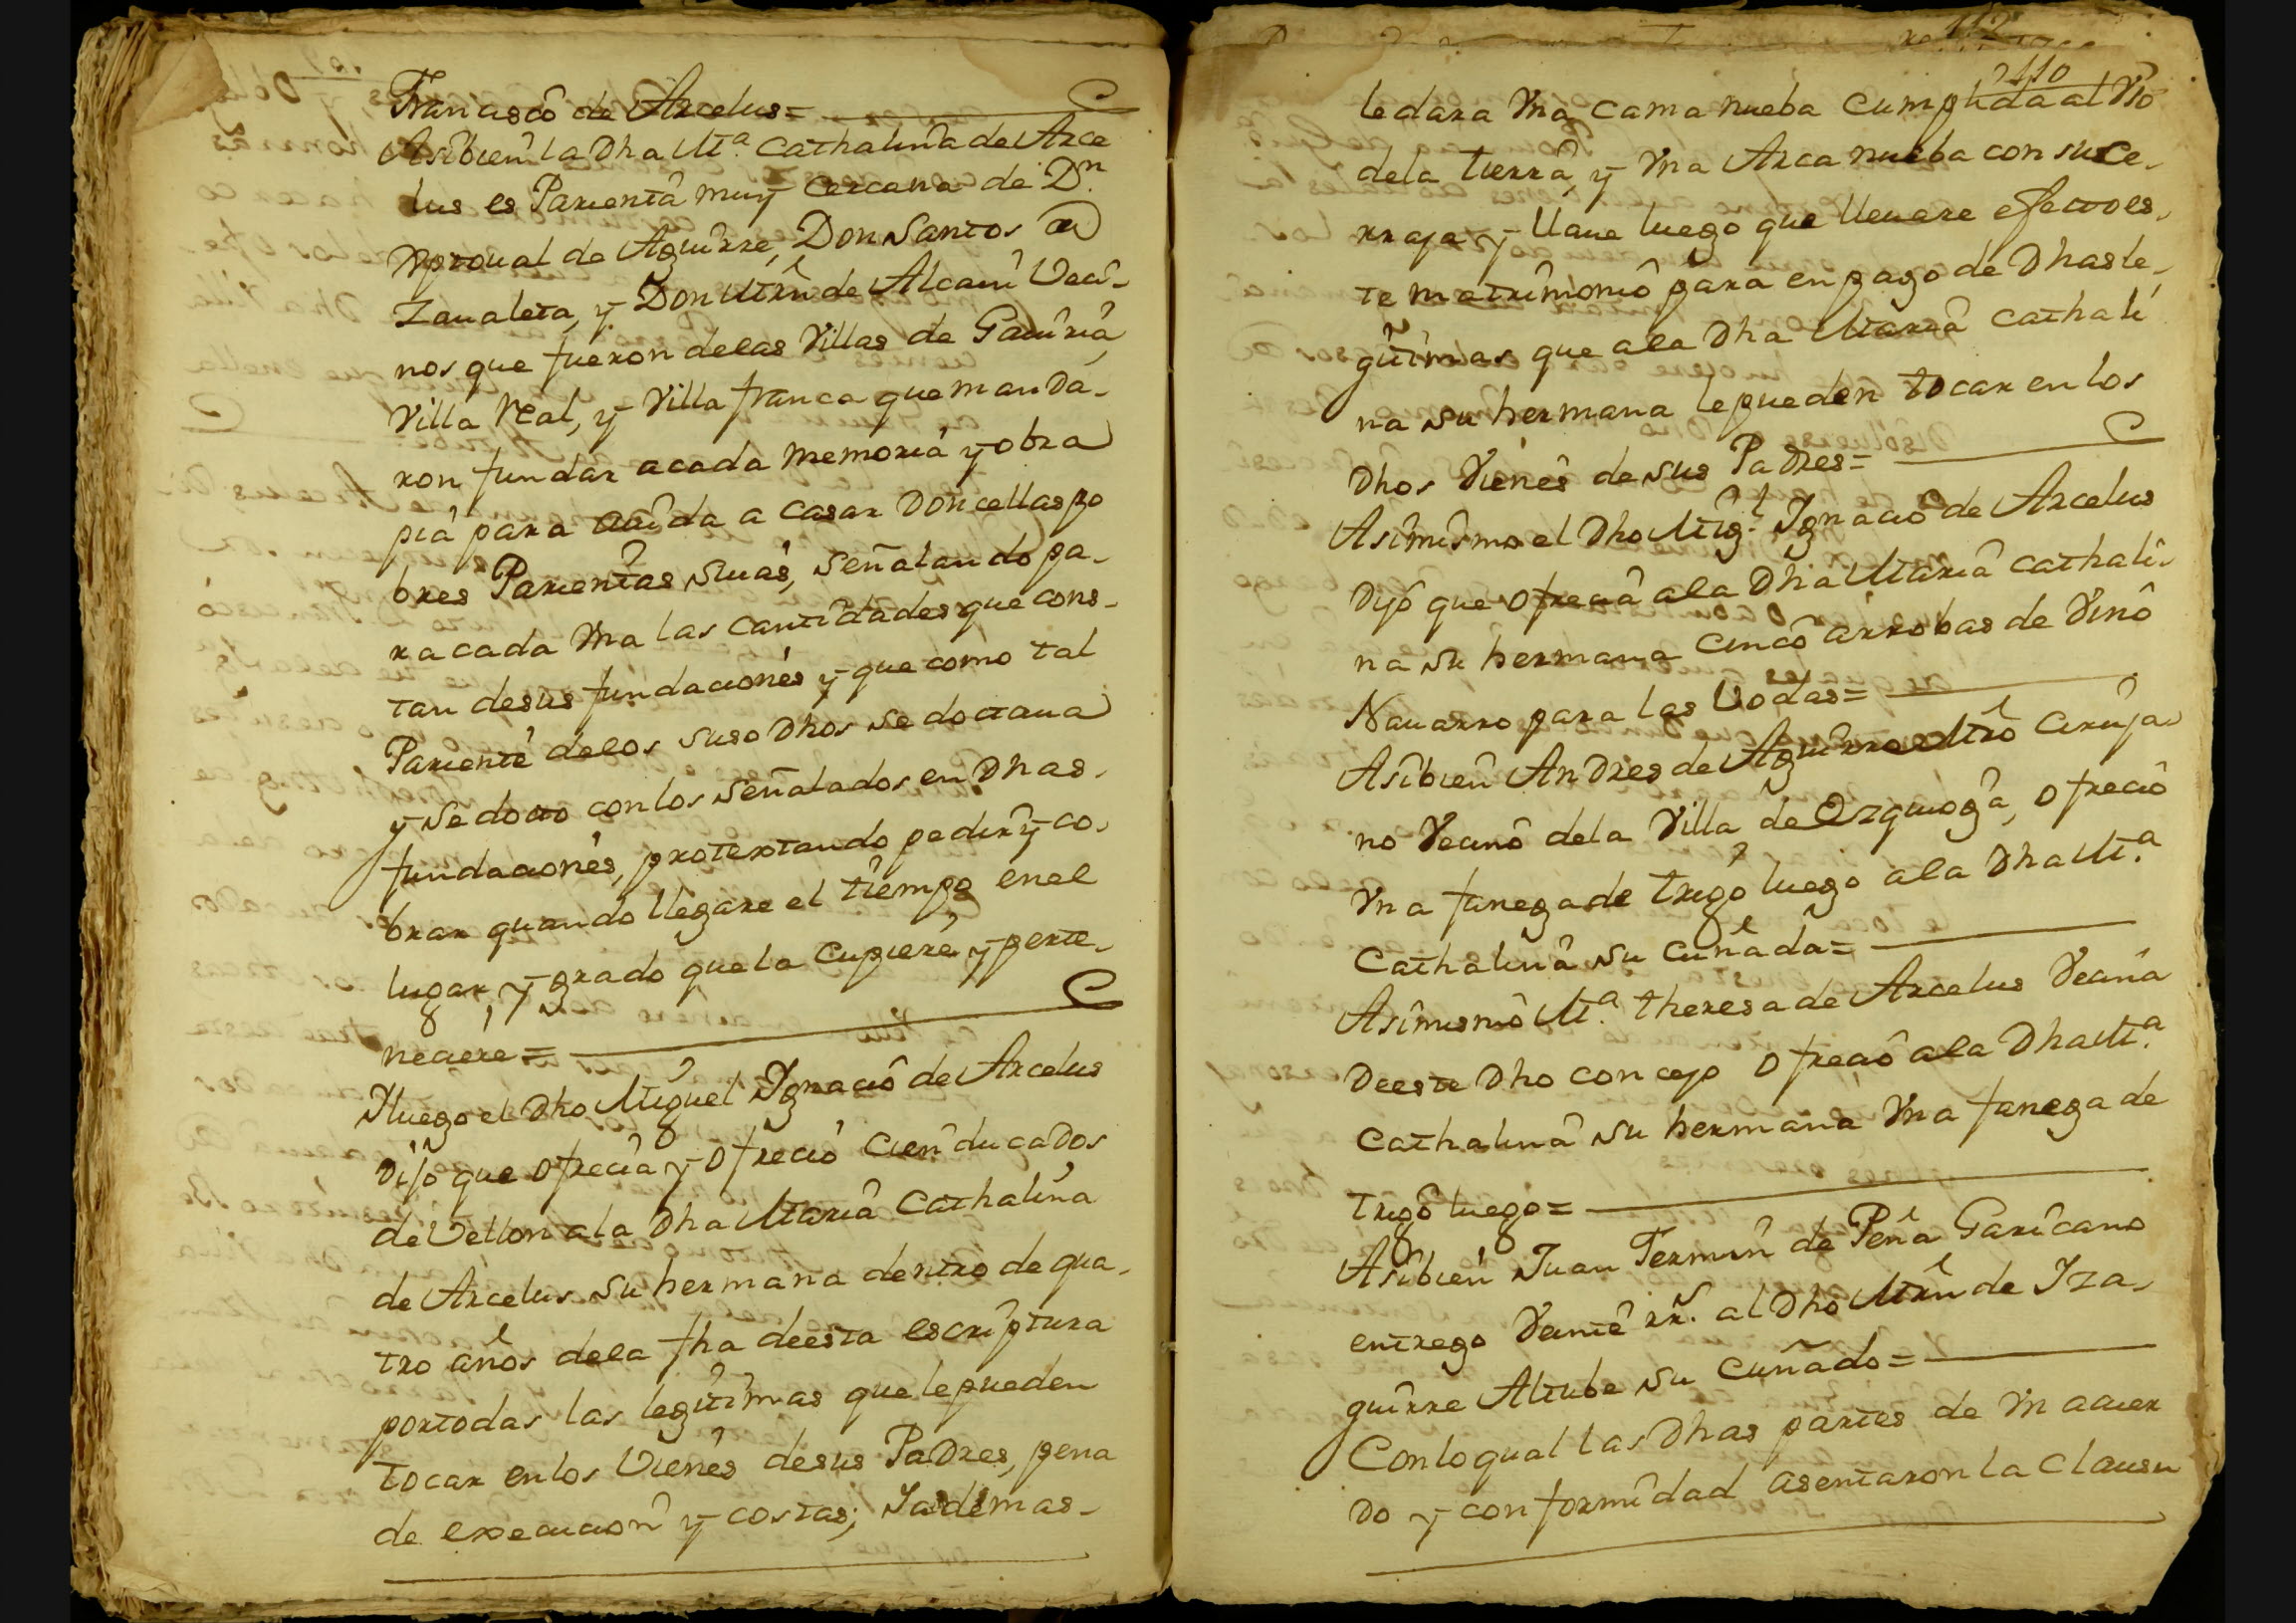 Francisco de Arcelus=
Asibien la Dha M.ª Cathalina de Arce
lus es Parienta muy cercana de D.n
Xptoual de Aguirre, Don Santos de
Zaualeta, y Don Mrn de Alcain Veci-
nos que fueron de las Villas de Gauiria,
Villa Real, y Villa franca que manda-
ron fundar a cada memoria y obra
pia para aiuda a casar Doncellas po
bres Parientas suias, señalando pa-
ra cada Vna las cantidades que cons-
tan de sus fundaciones y que como tal
Pariente de los suso Dhos se doctaua
y se docto con los señalados en Dhas
fundaciones, protextando pedir y co-
brar quando llegare el tiempo en el
lugar, y grado que la cupiere, y perte-
neciere=
Y luego el Dho Miguel Ygnacio de Arcelus
Dijo que ofrecia y ofrecio cien ducados
de Vellon a la Dha Maria Cathalina
de Arcelus su hermana dentro de qua-
tro años de la fha de esta escriptura
por todas las legitimas que le pueden
tocar en los Vienes de sus Padres, pena
de execucion y costas; Y ademas
110
le dara Vna cama nueba cumplida al Vso
de la tierra, y Vna Arca nueba con su ce-
rraja y llaue luego que lleuare efecto es-
te matrimonio para en pago de Dhas le-
gitimas que a la Dha Maria Cathali
na su hermana le pueden tocar en los
Dhos Vienes de sus Padres=
Asimismo el Dho Mig.l Ygnacio de Arcelus
Dijo que ofrecia a la Dha Maria Cathali-
na su hermana cinco arrobas de Vino
Nauarro para las Vodas=
Asibien Andres de Aguirre Mro Ciruja-
no Vecino de la Villa de Ezquioga, ofrecio
Vna fanega de trigo luego a la Dha M.ª
Cathalina su cuñada=
Asimismo M.ª theresa de Arcelus Vecina
De este Dho concejo ofrecio a la Dha M.ª
Cathalina su hermana Vna fanega de
trigo luego=
Asibien Juan Fermin de Peña Garicano
entrego Veinte rs. al Dho Mrn de Yza-
guirre Altube su cuñado=
Con lo qual las Dhas partes de Vn acuer
do y conformidad asentaron la Clausu